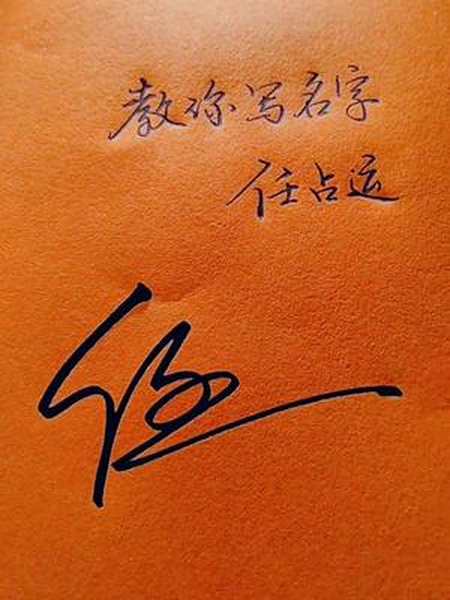 教你写名字
任占运